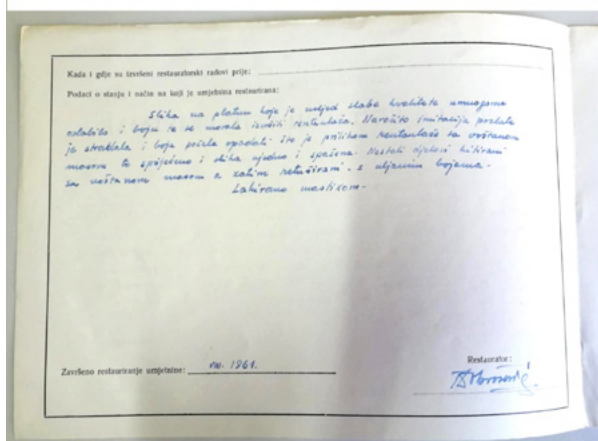 Kada i gdje su izvršeni restauratorski radovi prije:
Podaci o stanju i način na koji je umjetnina restaurirana:
Slika na platnu koje je uslijed slabe kvalitete
oslabilo i boju te se morala izvršiti rentoalaža. Naročito imitacija
je stradala i boja počela opadati što je prilikom rentoalaže sa voštanom
masom te spriječeno i slika ujedno i spašena. Nestali djelovi kitirani
sa voštanom masom a zatim retuširani s uljanim bojama.
Lakirano mastixom.
Završeno restauriranje umjetnine: 1961.
Restaurator: